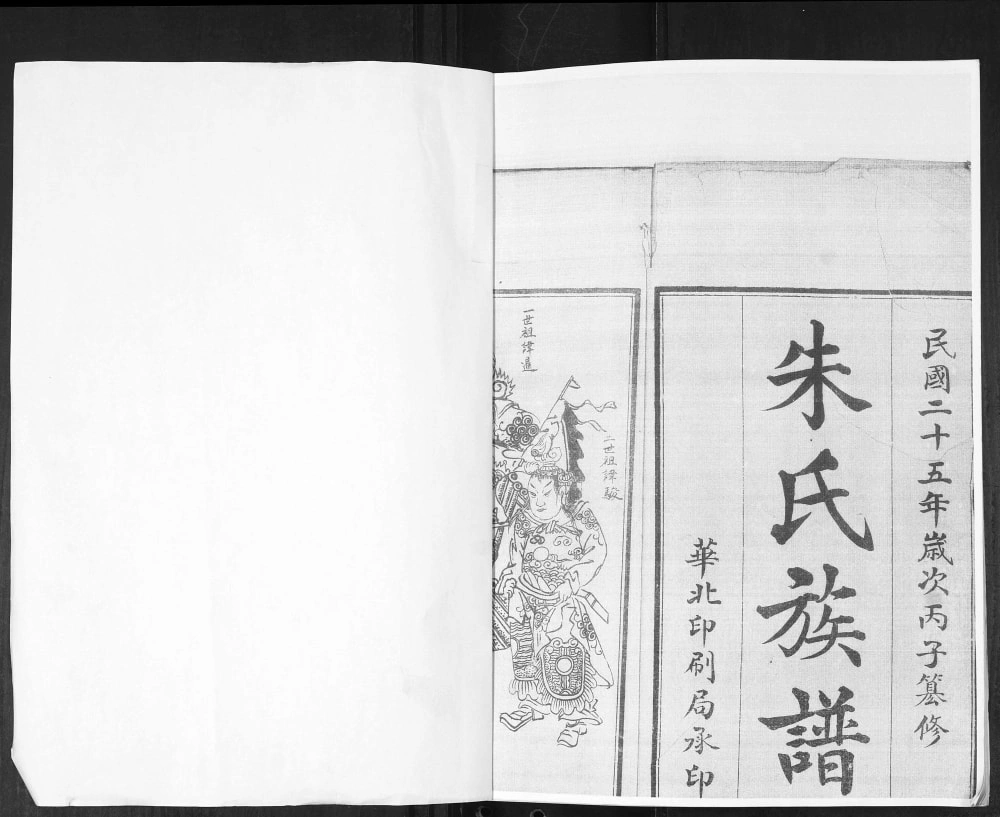 民國二十五年歲次丙子纂修
朱氏族譜
華北印刷局承印
二世祖諱駿
一世祖諱暹